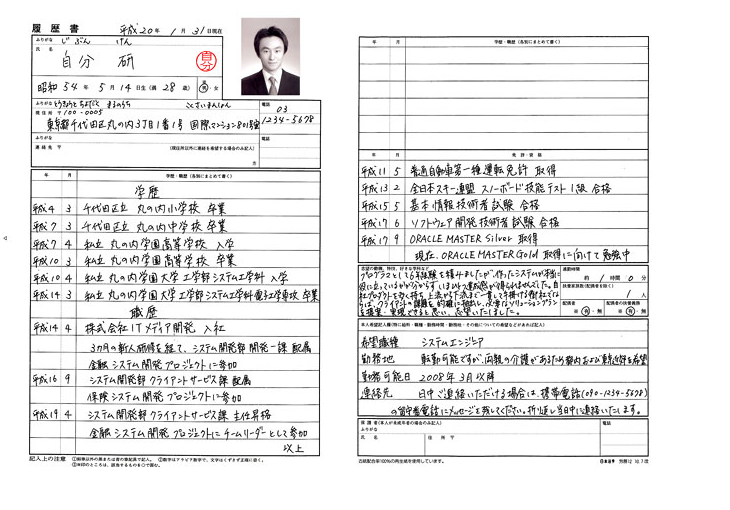 履歴書 平成20年 1月 31日現在
ふりがな じぶん けん
氏名
自分 研
昭和 54年 5月 14日生 (満 28歳) 男・女
ふりがな とうきょうと ちよだく まるのうち こくさいまんしょん
現住所 〒100-0005
東京都千代田区丸の内3丁目1番1号 国際マンション801号室
電話
03
1234-5678
ふりがな
連絡先 〒 (現住所以外に連絡を希望する場合のみ記入)
方
電話
年 月 学歴・職歴(各別にまとめて書く)
学歴
平成4 3 千代田区立 丸の内小学校 卒業
平成7 3 千代田区立 丸の内中学校 卒業
平成7 4 私立 丸の内学園高等学校 入学
平成10 3 私立 丸の内学園高等学校 卒業
平成10 4 私立 丸の内学園大学 工学部システム工学科 入学
平成14 3 私立 丸の内学園大学 工学部システム工学科電子工学専攻 卒業
職歴
平成14 4 株式会社ITメディア開発 入社
3カ月の新人研修を経て、システム開発部 開発一課 配属
金融システム開発プロジェクトに参加
平成16 9 システム開発部クライアントサービス課 配属
保険システム開発プロジェクトに参加
平成19 4 システム開発部 クライアントサービス課 主任昇格
金融システム開発プロジェクトにチームリーダーとして参加
以上
記入上の注意 ①鉛筆以外の黒または青の筆記具で記入。 ②数字はアラビア数字で、文字はくずさず正確に書く。
③※印のところは、該当するものを○で囲む。
年 月 学歴・職歴(各別にまとめて書く)
年 月 免許・資格
平成11 5 普通自動車第一種運転免許 取得
平成13 2 全日本スキー連盟 スノーボード技能テスト1級 合格
平成15 5 基本情報技術者試験 合格
平成17 6 ソフトウェア開発技術者試験 合格
平成17 9 ORACLE MASTER Silver 取得
現在、ORACLE MASTER Gold 取得に向けて勉強中
プログラマとして6年経験を積みましたが、作ったシステムが実際に
役に立っているかが分からず
通勤時間
約 1時間 0分
扶養家族数(配偶者を除く)
1人
配偶者
有・無
配偶者の扶養義務
有・無
本人希望記入欄(特に給料・職種・勤務時間・勤務地・その他についての希望などがあれば記入)
希望職種 システムエンジニア
勤務地 転勤可能ですが、両親の介護があるため都内および東京近郊を希望
勤務可能日 2008年3月以降
連絡先 日中ご連絡いただける場合は、携帯電話(090-1234-5678)
の留守番電話にメッセージを残してください。折り返し当日中に連絡いたします。
保護者(本人が未成年者の場合のみ記入)
ふりがな
氏名 住所 〒
電話
古紙配合率100%の再生紙を使用しています。